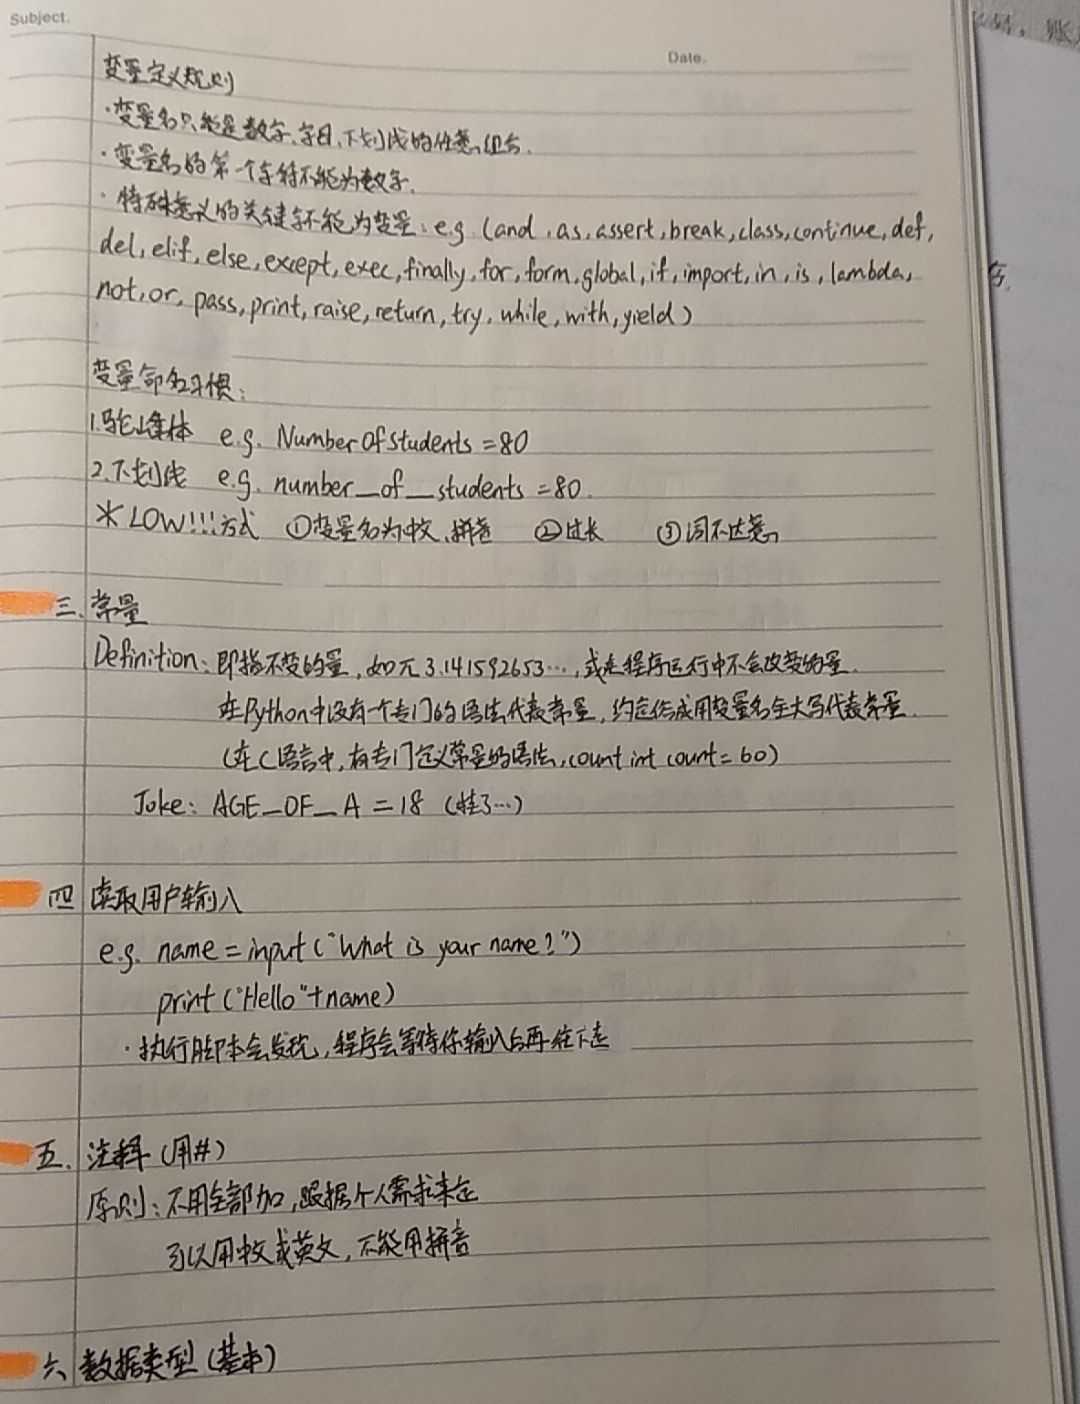 Subject.
Date.
变量定义规则
·变量名只能是数字、字母、下划线的任意组合.
·变量名的第一个字符不能为数字.
·特殊意义的关键字不能为变量: e.g (and, as, assert, break, class, continue, def,
del, elif, else, except, exec, finally, for, form, global, if, import, in, is, lambda,
not, or, pass, print, raise, return, try, while, with, yield)
变量命名习惯:
1.驼峰体 e.g. NumberOfStudents =80
2.下划线 e.g. number_of_students =80.
*LOW!!!方式 ①变量名为中文、拼音 ②过长 ③词不达意
三.常量
Definition: 即指不变的量, 如π 3.141592653…, 或是程序运行中不会改变的量.
在Python中没有一个专门的语法代表常量, 约定俗成用变量名全大写代表常量.
(在C语言中, 有专门定义常量的语法, count int count = 60)
Joke: AGE_OF_A = 18 (挂了…)
四 读取用户输入
e.g. name = input ("What is your name?")
print ("Hello"+name)
·执行脚本会发现, 程序会等待你输入后再往下走
五.注释 (用#)
原则: 不用全部加, 跟据个人需求来定
可以用中文或英文, 不能用拼音
六 数据类型 (基本)